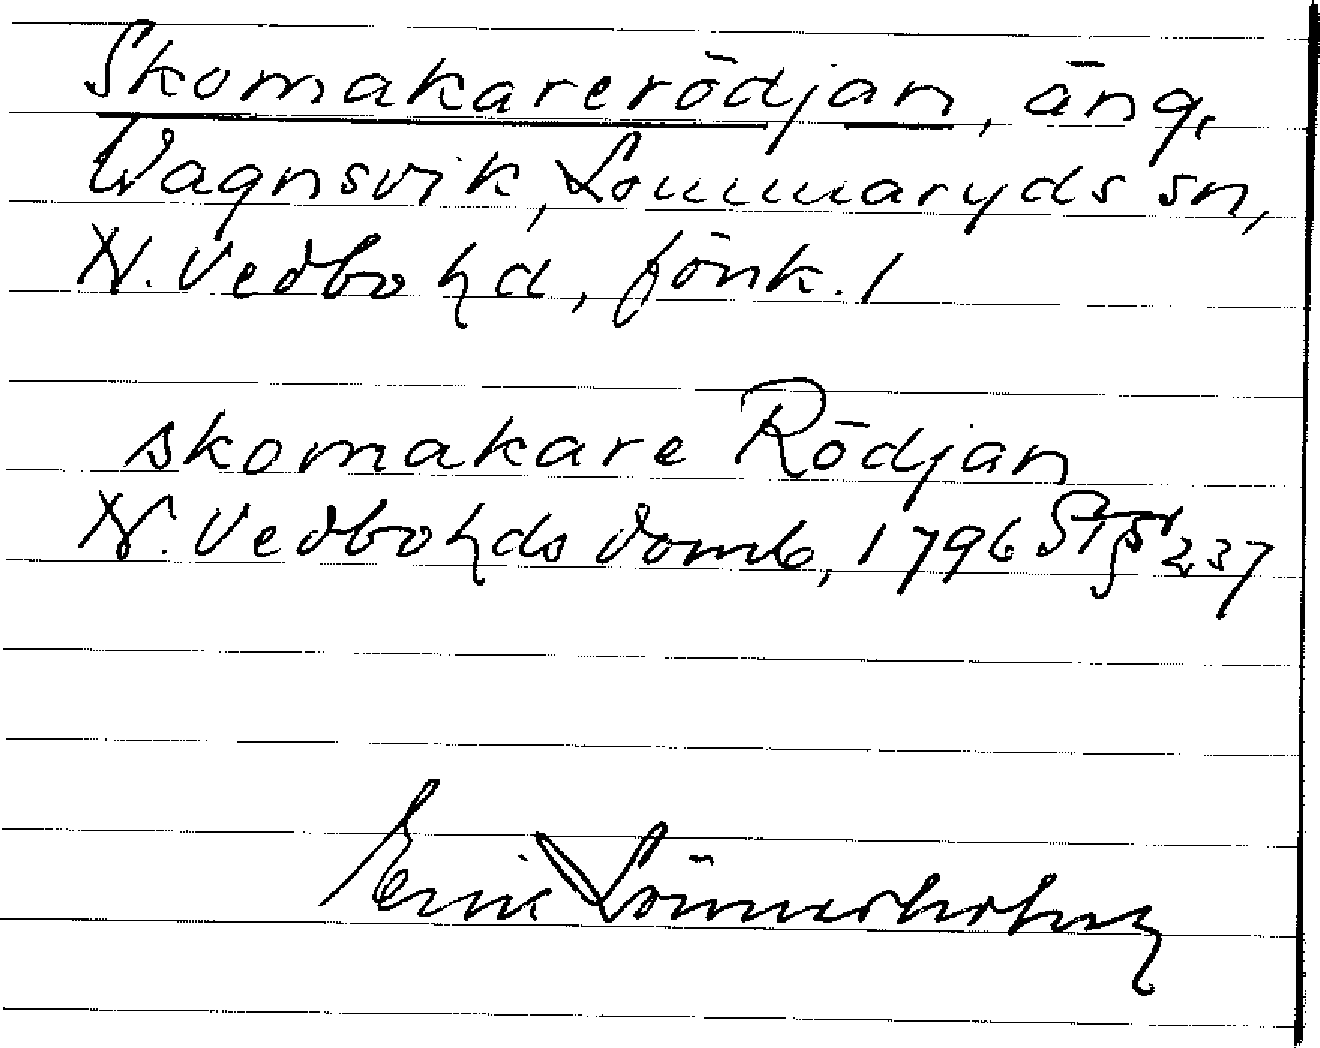 Skomakarerödjan, äng,
Vagnsvik, Lommaryds sn,
N. Vedbo hd, Jönk. l
skomakare Rödjan
N. Vedbo hds domb, 1796 St§ 237
Erik Lönnerholm